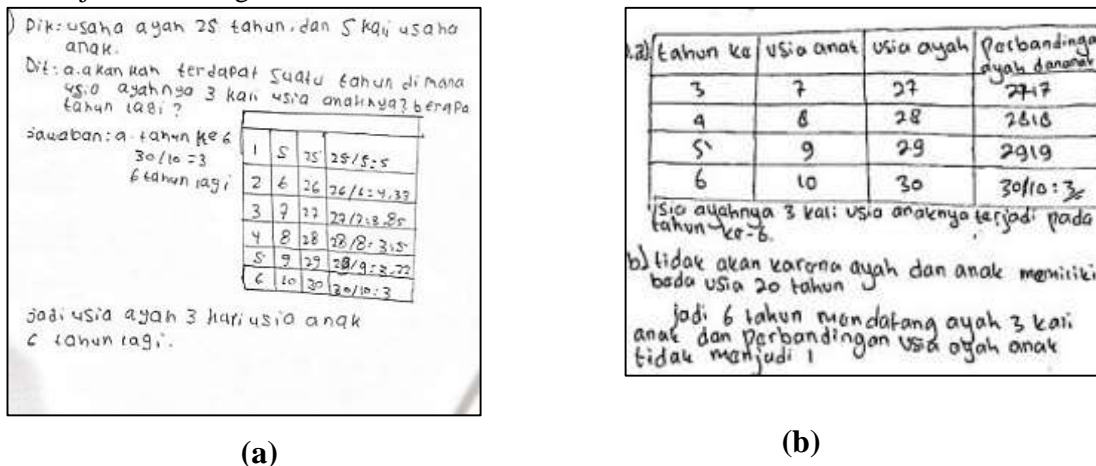 ) Dik: usaha ayah 25 tahun, dan 5 kali usaha
anak.
Dit: a. akankah terdapat suatu tahun dimana
usia ayahnya 3 kali usia anaknya? berapa
tahun lagi?
Jawaban: a. tahun ke 6
30/10 = 3
6 tahun lagi
1 5 25 25/5 = 5
2 6 26 26/6 = 4,33
3 7 27 27/7 = 3,85
4 8 28 28/8 = 3,5
5 9 29 29/9 = 3,22
6 10 30 30/10 = 3
jadi usia ayah 3 kali usia anak
6 tahun lagi.
(a)
a) tahun ke usia anak usia ayah Perbandinga
ayah dan anak
3 7 27 27/7
4 8 28 28/8
5 9 29 29/9
6 10 30 30/10 = 3
usia ayahnya 3 kali usia anaknya terjadi pada
tahun ke-6.
b) tidak akan karena ayah dan anak memiliki
beda usia 20 tahun
jadi 6 tahun mendatang ayah 3 kali
anak dan perbandingan usia ayah anak
tidak menjadi 1
(b)